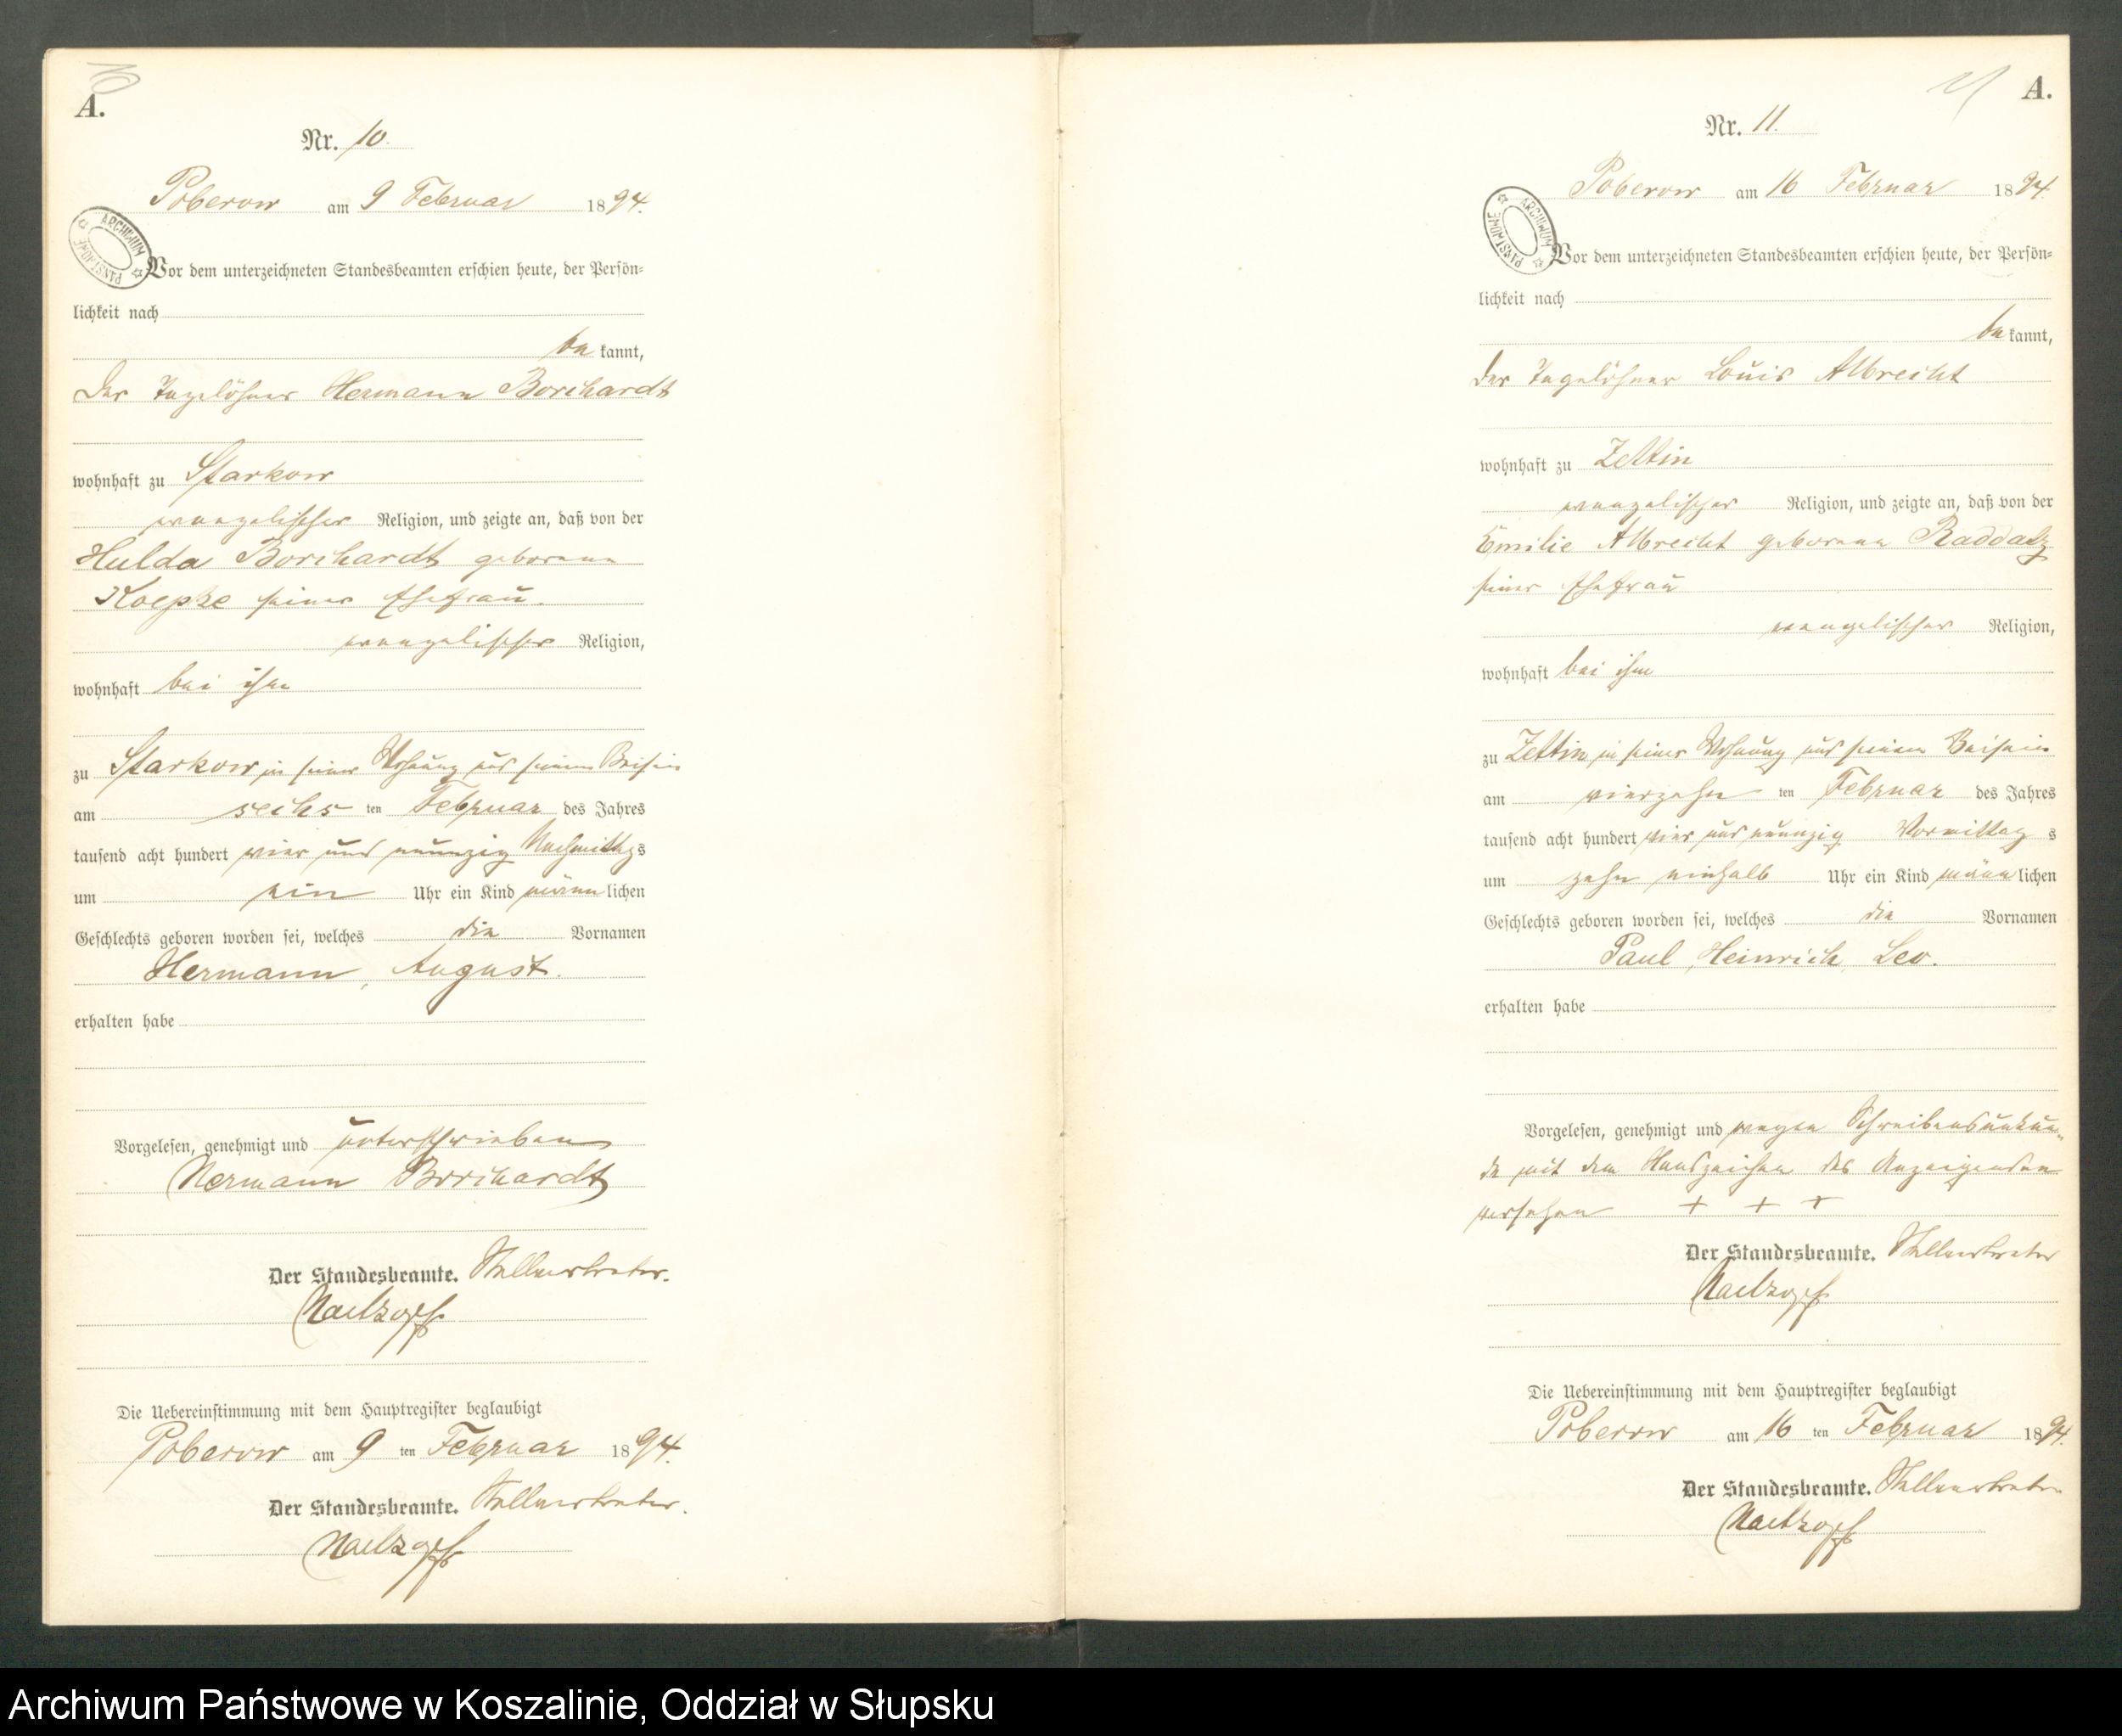 10
A.
Nr. 10.
Poberow am 9 Februar 1894.
ARCHIWUM PAŃSTWOWE
Vor dem unterzeichneten Standesbeamten erschien heute, der Persön-
lichkeit nach
bekannt,
der Tagelöhner Hermann Borchardt
wohnhaft zu Starkow
evangelischer Religion, und zeigte an, daß von der
Hulda Borchardt geborene
Koepke seiner Ehefrau
evangelischer Religion,
wohnhaft bei ihm
zu Starkow in seiner Wohnung und seinem Beisein
am sechsten Februar des Jahres
tausend acht hundert vier und neunzig Nachmittags
um ein Uhr ein Kind männlichen
Geschlechts geboren worden sei, welches die Vornamen
Hermann, August.
erhalten habe
Vorgelesen, genehmigt und unterschrieben
Hermann Borchardt
Der Standesbeamte. Stellvertreter.
Die Uebereinstimmung mit dem Hauptregister beglaubigt
Poberow am 9 ten Februar 1894.
Der Standesbeamte. Stellvertreter.
11
A.
Nr. 11.
Poberow am 16 Februar 1894.
ARCHIWUM PAŃSTWOWE
Vor dem unterzeichneten Standesbeamten erschien heute, der Persön-
lichkeit nach
bekannt,
der Tagelöhner Louis Albrecht
wohnhaft zu Zettin
evangelischer Religion, und zeigte an, daß von der
Emilie Albrecht geborene Raddatz
seiner Ehefrau
evangelischer Religion,
wohnhaft bei ihm
zu Zettin in seiner Wohnung und seinem Beisein
am vierzehnten Februar des Jahres
tausend acht hundert vier und neunzig Vormittags
um zehn einhalb Uhr ein Kind männlichen
Geschlechts geboren worden sei, welches die Vornamen
Paul, Heinrich, Leo.
erhalten habe
Vorgelesen, genehmigt und wegen Schreibensunkun-
de mit dem Handzeichen des Anzeigenden
versehen + + +
Der Standesbeamte. Stellvertreter
Die Uebereinstimmung mit dem Hauptregister beglaubigt
Poberow am 16 ten Februar 1894.
Der Standesbeamte. Stellvertreter
Archiwum Państwowe w Koszalinie, Oddział w Słupsku